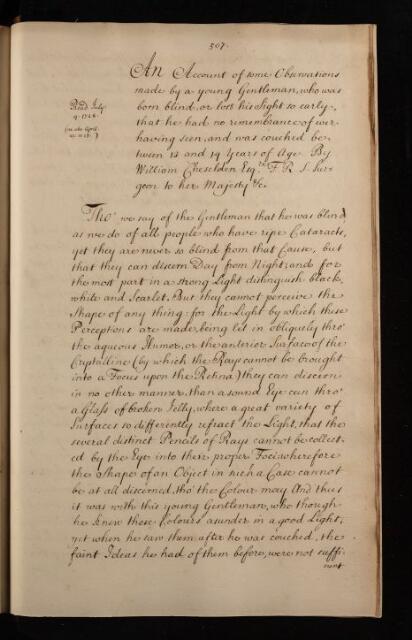 507.
An Account of some Observations
made by a young Gentleman, who was
born blind, or lost his Sight so early,
that he had no remembrance of ever
having seen, and was couched be-
tween 13 and 14 Years of Age. By
William Cheselden Esq.r F. R. S. Sur-
geon to her Majesty &c.
Read July
9. 1728.
Tho' we say of the Gentleman that he was blind,
as we do of all people who have ripe Cataracts,
yet they are never so blind from that Cause, but
that they can discern Day from Night; and for
the most part in a strong Light distinguish black,
white and Scarlet. But they cannot perceive the
Shape of any thing: for the Light by which these
Perceptions are made, being let in obliquely thro'
the aqueous Humor, or the anterior Surface of the
Crystalline (by which the Rays cannot be brought
into a Focus upon the Retina) they can discern
in no other manner, than a sound Eye can thro'
a Glass of broken Jelly, where a great variety of
Surfaces so differently refract the Light, that the
several distinct Pencils of Rays cannot be collect-
ed by the Eye into their proper Foci; wherefore
the Shape of an Object in such a Case cannot
be at all discerned, tho' the Colour may. And thus
it was with this young Gentleman, who though
he knew these Colours asunder in a good Light,
yet when he saw them after he was couched, the
faint Ideas he had of them before, were not suffi-
cient